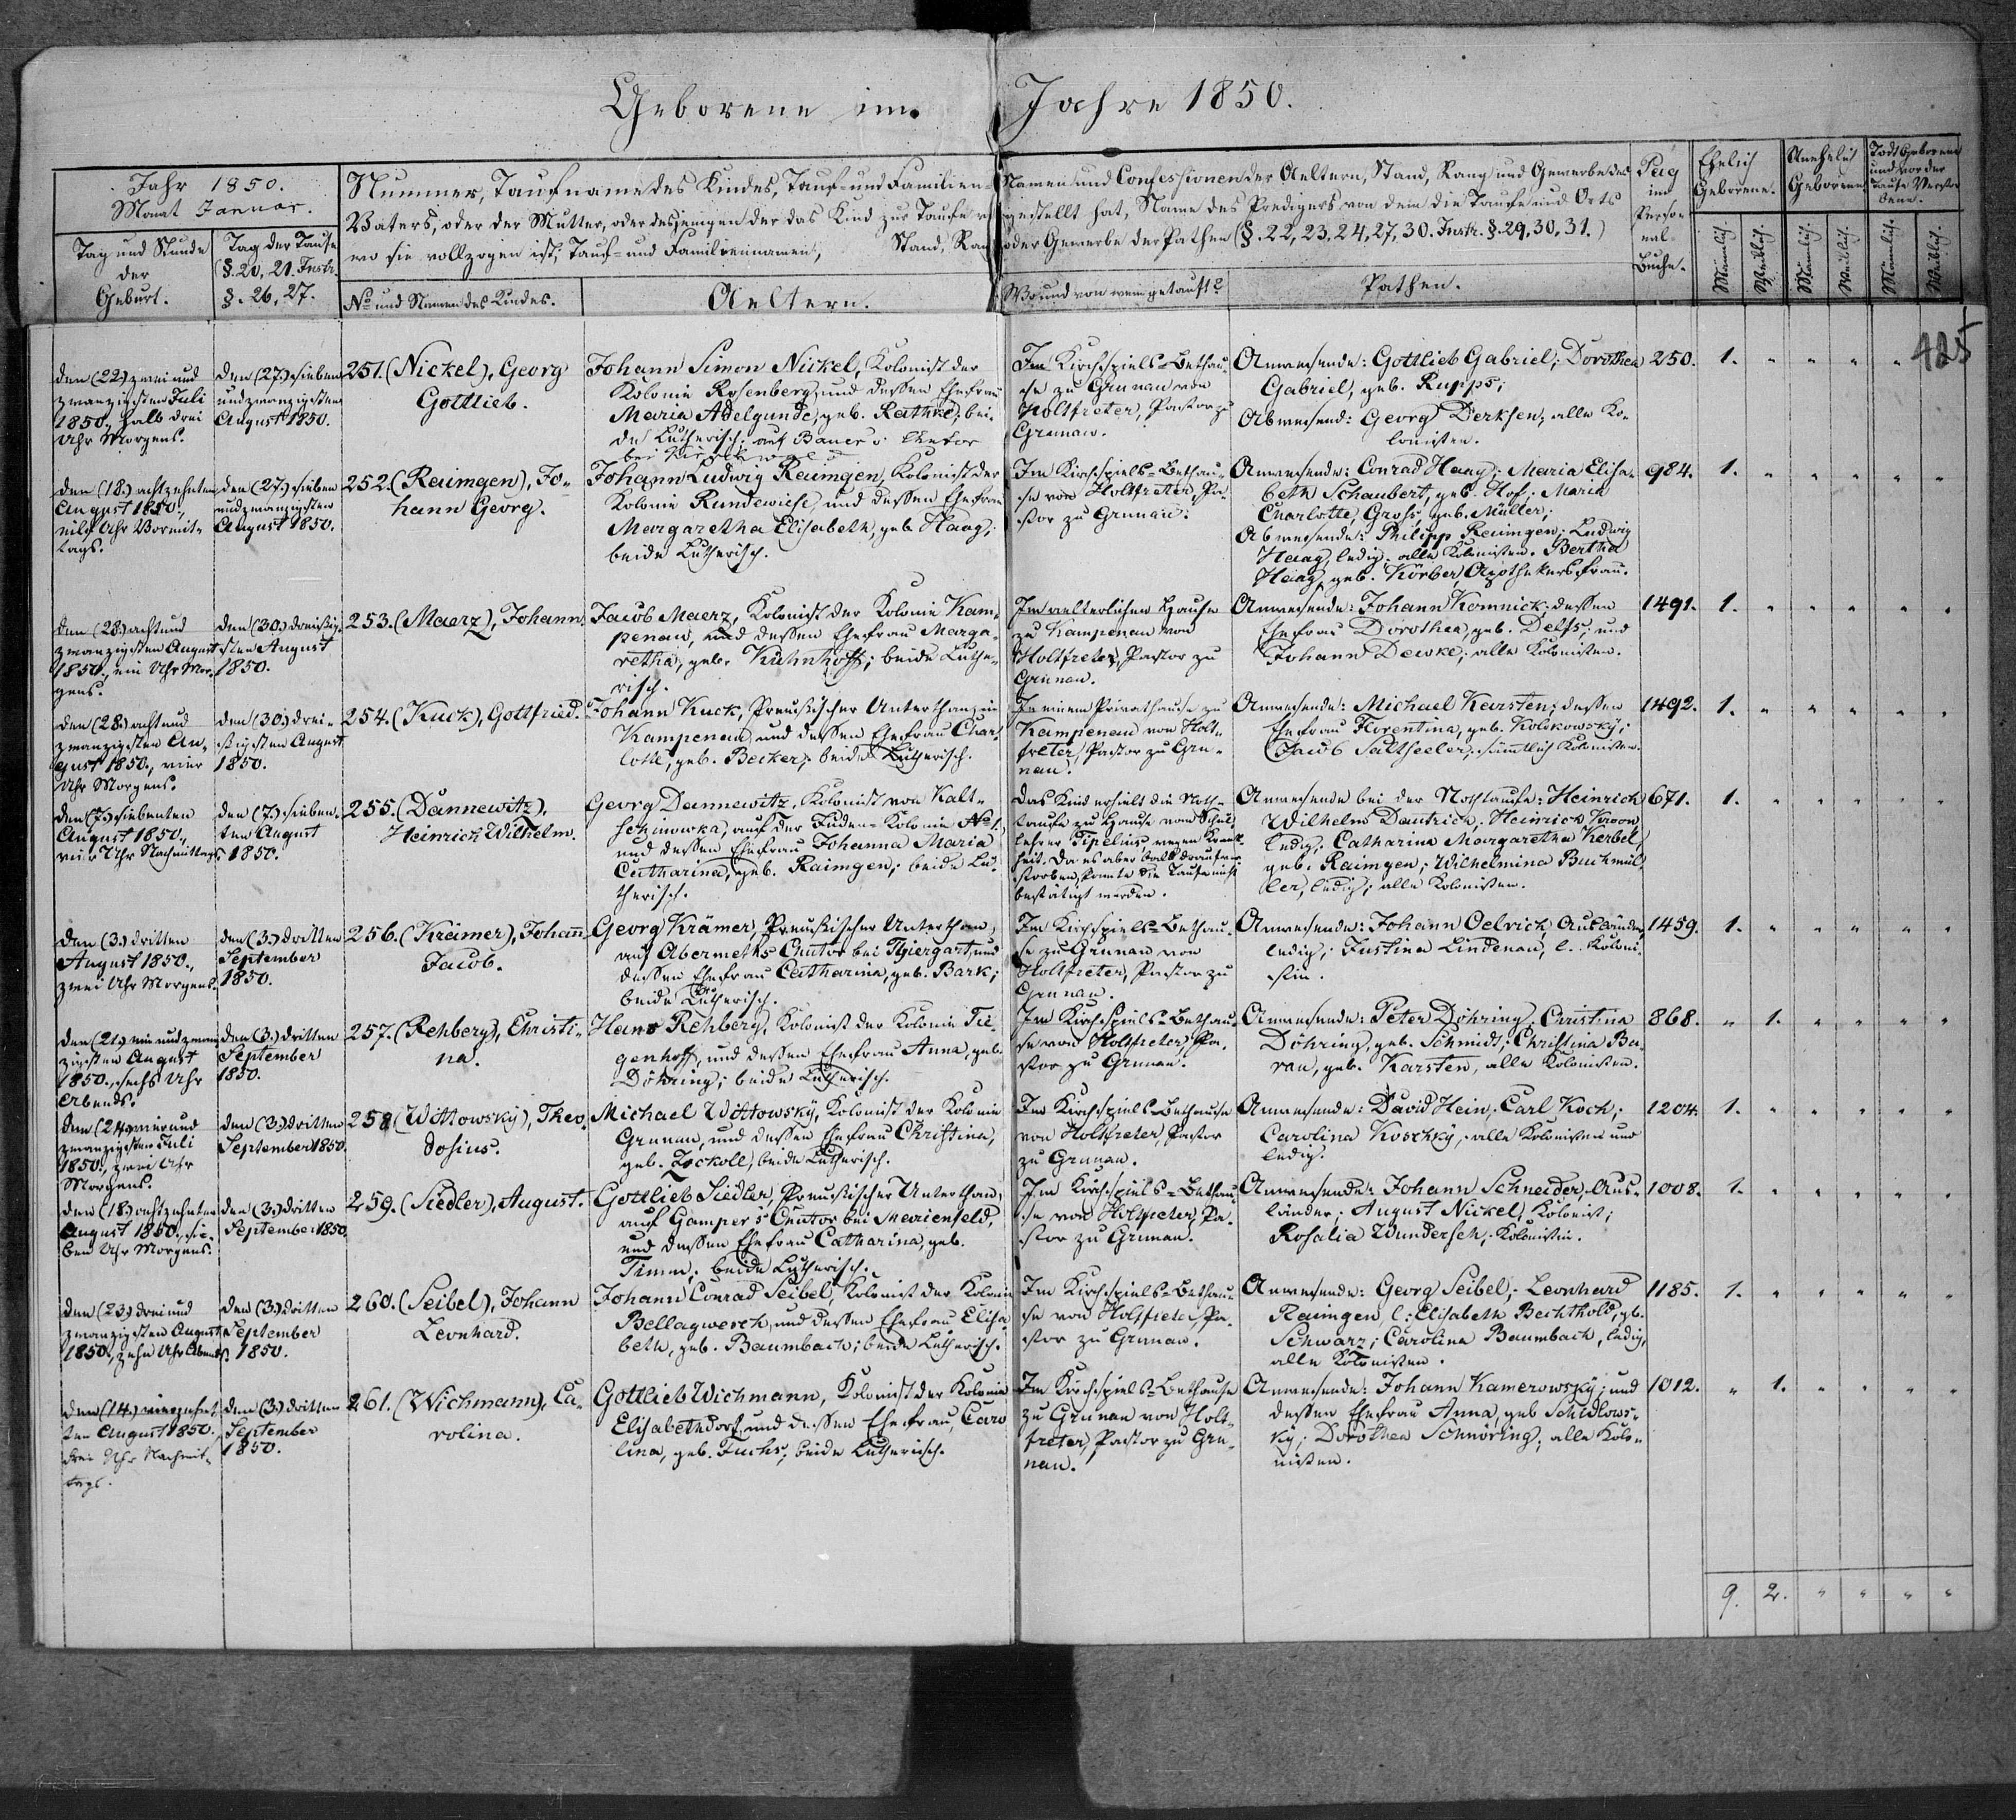 Geborene im Jahre 1850.
Jahr 1850.
Monat Januar.
Tag und Stunde
der
Geburt.
Tag der Taufe
(§. 20, 21. Instr.
§. 26, 27.
Nummer, Taufname des Kindes, Tauf- und Familien-
Vaters, oder der Mutter, oder desjenigen der das Kind zur Taufe
wo sie vollzogen ist, Tauf- und Familiennamen, Stand, Ran
No und Namen des Kindes.
Aeltern.
Namen und Confessionen der Aeltern, Stand, Rang und Gewerbe des
gestellt hat, Name des Predigers von dem die Taufe und Orts
oder Gewerbe der Pathen (§. 22, 23, 24, 27, 30. Instr. §. 29, 30, 31.)
Wo und von wem getauft?
Pathen.
Pag
im
Perso-
nal-
Buche.
Ehelich
Geborene.
Unehelich
Geborene
Todt Geborene
und vor der
Taufe Versto
bene.
Männlich.
Weiblich.
Männlich.
Weiblich.
Männlich.
Weiblich.
425
den (22.) zwei und
zwanzigsten Juli
1850., halb drei
Uhr Morgens.
den (27.) sieben
undzwanzigsten
August 1850.
251. (Nickel), Georg
Gottlieb.
Johann Simon Nickel, Kolonist der
Kolonie Rosenberg, und dessen Ehefrau
Maria Adelgunde, geb. Rathke; bei-
de Lutherisch; auf Bauer's Chutor
bei
Im Kirchspiels-Bethau-
se zu Grunau von
Holtfreter, Pastor zu
Grunau.
Anwesende: Gottlieb Gabriel; Dorothea
Gabriel, geb. Rupps;
Abwesend: Georg Derksen, alle Ko-
lonisten.
250. 1. " " " "
den (18.) achtzehnten
August 1850.,
eilf Uhr Vormit-
tags.
den (27.) sieben
undzwanzigsten
August 1850.
252. (Raimgen), Jo-
hann Georg.
Johann Ludwig Raimgen, Kolonist der
Kolonie Rundewiese, und dessen Ehefrau
Margaretha Elisabeth, geb. Haag;
beide Lutherisch.
Im Kirchspiels-Bethau-
se von Holtfreter, Pa-
stor zu Grunau.
Anwesende: Conrad Haag; Maria Elisa-
beth Schaubert, geb. Hof; Maria
Charlotte Gross, geb. Müller;
Abwesende: Philipp Raimgen; Ludwig
Haag, ledig, alle Kolonisten. Bertha
Haag, geb. Körber, Apothekersfrau.
984. 1. " " " " "
den (28.) acht und
zwanzigsten August
1850., ein Uhr Mor-
gens.
den (30.) dreißig-
sten August
1850.
253. (Maerz), Johann.
Jacob Maerz, Kolonist der Kolonie Kam-
penau, und dessen Ehefrau Marga-
retha, geb. Kühnhoff; beide Luthe-
risch.
Im aelterlichen Hause
zu Kampenau von
Holtfreter, Pastor zu
Grunau.
Anwesende: Johann Komnick; dessen
Ehefrau Dorothea, geb. Delfs; und
Johann Dewke; alle Kolonisten.
1491. 1. " " " " "
den (28.) acht und
zwanzigsten Au-
gust 1850., vier
Uhr Morgens.
den (30.) drei-
ßigsten August
1850.
254. (Kuck), Gottfried.
Johann Kuck, Preußischer Unterthan in
Kampenau, und dessen Ehefrau Char-
lotte, geb. Becker; beide Lutherisch.
In einem Privathause zu
Kampenau von Holt-
freter, Pastor zu Gru-
nau.
Anwesende: Michael Karsten; dessen
Ehefrau Florentina, geb. Kolokowsky;
Jacob Saltseeler; sämmtlich Kolonisten.
1492. 1. " " " " "
den (7.) siebenten
August 1850.,
vier Uhr Nachmittags
den (7.) sieben-
ten August
1850.
255. (Dannewitz),
Heinrich Wilhelm.
Georg Dannewitz, Kolonist von Kalt-
schinowka, auf der Juden-Kolonie No 1.
und dessen Ehefrau Johanna Maria
Catharina, geb. Raimgen; beide Lu-
therisch.
Das Kind erhielt die Noth-
taufe zu Hause vom Schul-
lehrer Tipelius, wegen Krank-
heit. Da es aber bald darauf ver-
storben, konnte die Taufe nicht
bestätigt werden.
Anwesende bei der Nothtaufe: Heinrich
Wilhelm Dautrich; Heinrich Kroon
ledig; Catharina Margaretha Kerbel,
geb. Raimgen; Wilhelmina Buchmül-
ler, ledig; alle Kolonisten.
671. 1. " " " " "
den (3.) dritten
August 1850.,
zwei Uhr Morgens.
den (3.) dritten
September
1850.
256. (Krämer), Johann
Jacob.
Georg Krämer, Preußischer Unterthan,
auf Abermeths Chutor bei Thiergart, und
dessen Ehefrau Catharina, geb. Bark;
beide Lutherisch.
Im Kirchspiels-Bethau-
se zu Grunau von
Holtfreter, Pastor zu
Grunau.
Anwesende: Johann Oelrich, Ausländer
ledig; Justina Lindenau, l. Koloni-
stin.
1459. 1. " " " " "
den (21.) ein und zwan-
zigsten August
1850., sechs Uhr
Abends.
den (3.) dritten
September
1850.
257. (Rehberg), Christi-
na.
Hans Rehberg, Kolonist der Kolonie Tie-
genhoff, und dessen Ehefrau Anna, geb.
Döhring; beide Lutherisch.
Im Kirchspiels-Bethau-
se von Holtfreter, Pa-
stor zu Grunau.
Anwesende: Peter Döhring; Christina
Döhring, geb. Schmidt; Christina Ba-
ran, geb. Karsten, alle Kolonisten.
868. " 1. " " " "
den (24.) vier und
zwanzigsten Juli
1850., zwei Uhr
Morgens.
den (3.) dritten
September 1850.
258. (Wittowsky), Theo-
dosius.
Michael Wittowsky, Kolonist der Kolonie
Grunau, und dessen Ehefrau Christina,
geb. Zockoll; beide Lutherisch.
Im Kirchspiels-Bethause
von Holtfreter, Pastor
zu Grunau.
Anwesende: David Hein; Carl Koch;
Carolina Koschky, alle Kolonisten und
ledig.
1204. 1. " " " " "
den (18.) achtzehnten
August 1850., sie-
ben Uhr Morgens.
den (3.) dritten
September 1850.
259. (Siedler), August.
Gottlieb Siedler, Preußischer Unterthan,
auf Gamper's Chutor bei Marienfeld,
und dessen Ehefrau Catharina, geb.
Timm; beide Lutherisch.
Im Kirchspiels-Bethau-
se von Holtfreter, Pa-
stor zu Grunau.
Anwesende: Johann Schneider, Aus-
länder; August Nickel, Kolonist;
Rosalia Wundersch, Kolonistin.
1008. 1. " " " " "
den (23.) drei und
zwanzigsten August
1850., zehn Uhr Abends.
den (3.) dritten
September
1850.
260. (Seibel), Johann
Leonhard.
Johann Conrad Seibel, Kolonist der Kolonie
Bellagwesch, und dessen Ehefrau Elisa-
beth, geb. Baumbach; beide Lutherisch.
Im Kirchspiels-Bethau-
se von Holtfreter, Pa-
stor zu Grunau.
Anwesende: Georg Seibel; Leonhard
Raimgen, l.; Elisabeth Bechthold, gb.
Schwarz; Carolina Baumbach, ledig,
alle Kolonisten.
1185. 1. " " " " "
den (14.) vierzehn-
ten August 1850.
drei Uhr Nachmit-
tags.
den (3.) dritten
September
1850.
261. (Wichmann), Ca-
rolina.
Gottlieb Wichmann, Kolonist der Kolonie
Elisabethdorf, und dessen Ehefrau, Caro
lina, geb. Fuchs; beide Lutherisch.
Im Kirchspiels-Bethause
zu Grunau von Holt-
freter, Pastor zu Gru-
nau.
Anwesende: Johann Kamerowszky; und
dessen Ehefrau Anna, geb. Schidlows-
ky; Dorothea Schnöring; alle Kolo-
nisten.
1012. " 1. " " " "
9. 2. " " " "